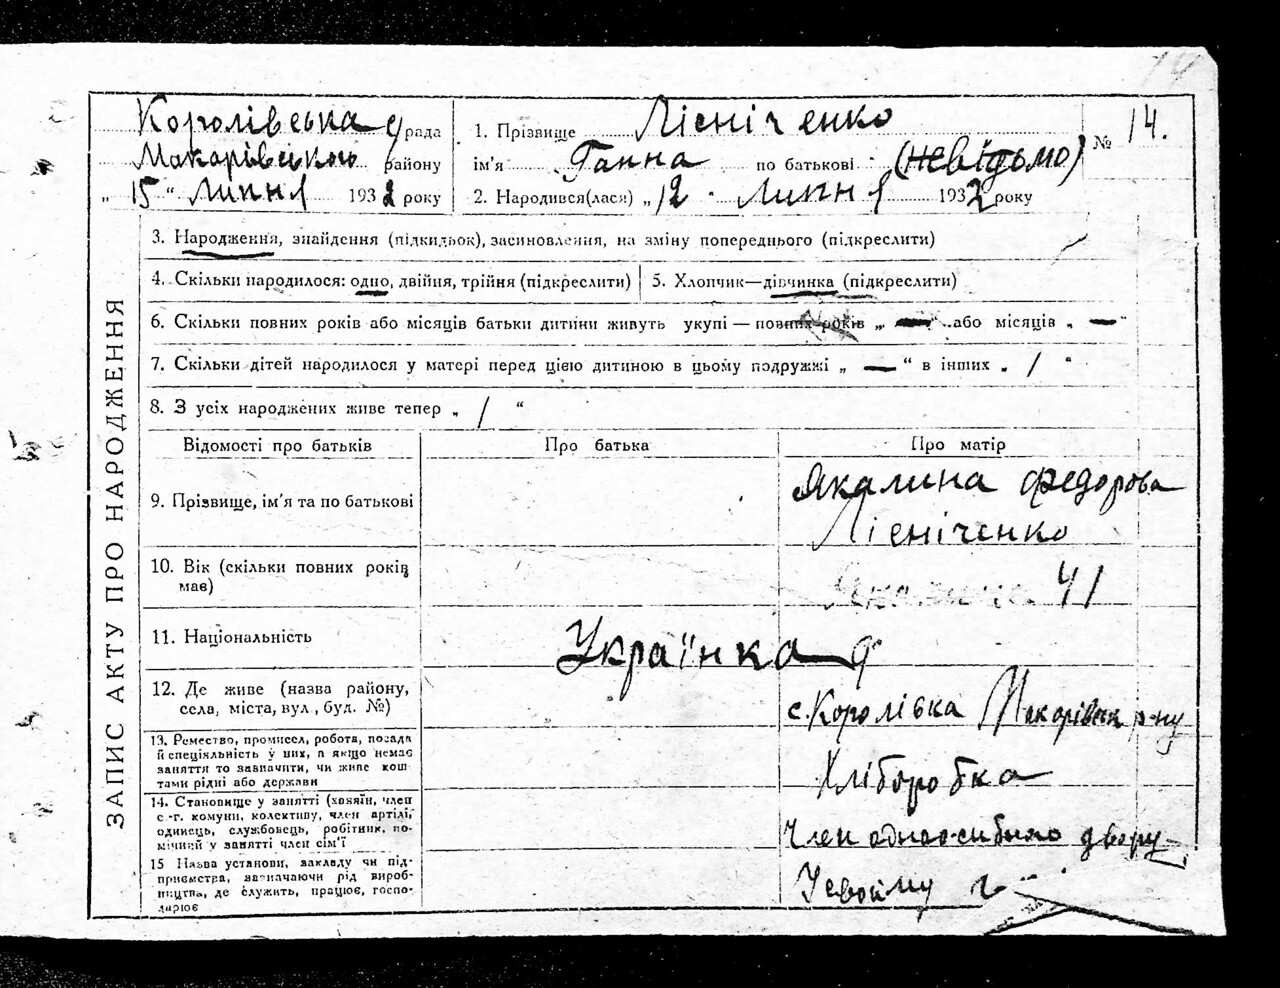 14
Королівська с/рада
Макарівського району
„ 15 “ Липня 1932 року
1. Прізвище Лісніченко
ім'я Ганна по батькові (невідьмо)
2. Народився(лася) „ 12 “ Липня 1932 року
№ 14.
3. Народження, знайдення (підкидьок), засиновлення, на зміну попереднього (підкреслити)
4. Скільки народилося: одно, двійня, трійня (підкреслити)
5. Хлопчик—дівчинка (підкреслити)
6. Скільки повних років або місяців батьки дитини живуть укупі — повних років „ — “ або місяців „ — “
7. Скільки дітей народилося у матері перед цією дитиною в цьому подружжі „ — “ в інших „ / “
8. З усіх народжених живе тепер „ / “
ЗАПИС АКТУ ПРО НАРОДЖЕННЯ
Відомості про батьків
Про батька
Про матір
9. Прізвище, ім'я та по батькові
Якалина Федорова
Лісніченко
10. Вік (скільки повних років
має)
41
11. Національність
Українка
12. Де живе (назва району,
села, міста, вул., буд. №)
с. Королівка Макарівськ р-ну
13. Ремество, промисел, робота, посада
й спеціяльність у них, а якщо немає
заняття то зазначити, чи живе кош
тами рідні або держави
Хліборобка
14. Становище у занятті (хазяїн, член
с.-г. комуни, колективу, член артілі,
одинець, службовець, робітник, по-
мічний у занятті член сім'ї
Член одноосибного двору
15 Назва установи, закладу чи під-
приємства, зазначаючи рід вироб-
ництва, де служить, працює, госпо-
дарює
У своїму г